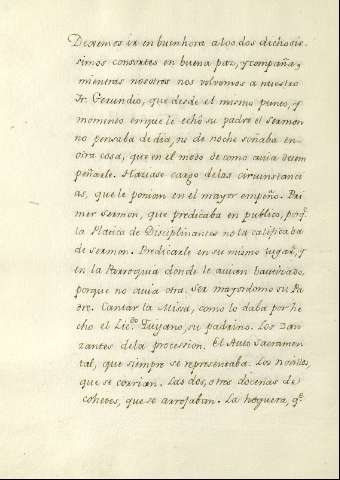 Dexemos ir en buenhora a los dos dichosis-
simos consortes en buena paz, y compaña, y
mientras nosotros nos volvemos a nuestro
Fr. Gerundio, que desde el mismo punto, y
momento en que le echó su padre el sermon
no pensaba de dia, ni de noche soñaba en
otra cosa, que en el modo de como avia desem
peñarle. Haciase cargo delas circunstanci
as, que le ponian en el mayor empeño. Pri
mer Sermon, que predicaba en publico, porq.
la Platica de Disciplinantes no la calificaba
de sermon. Predicarle en su mismo lugar, y
en la Parroquia donde le avian bautizado,
porque no avia otra. Ser mayordomo su Pa
dre. Cantar la Misa, como lo daba por he
cho el Lic.do Quijano, su padrino. Los dan
zantes dela procession. El Auto Sacramen
tal, que siempre se representaba. Los novillos,
que se corrian. Las dos, o tres docenas de
cohetes, que se arrojaban. La hoguera, q.e